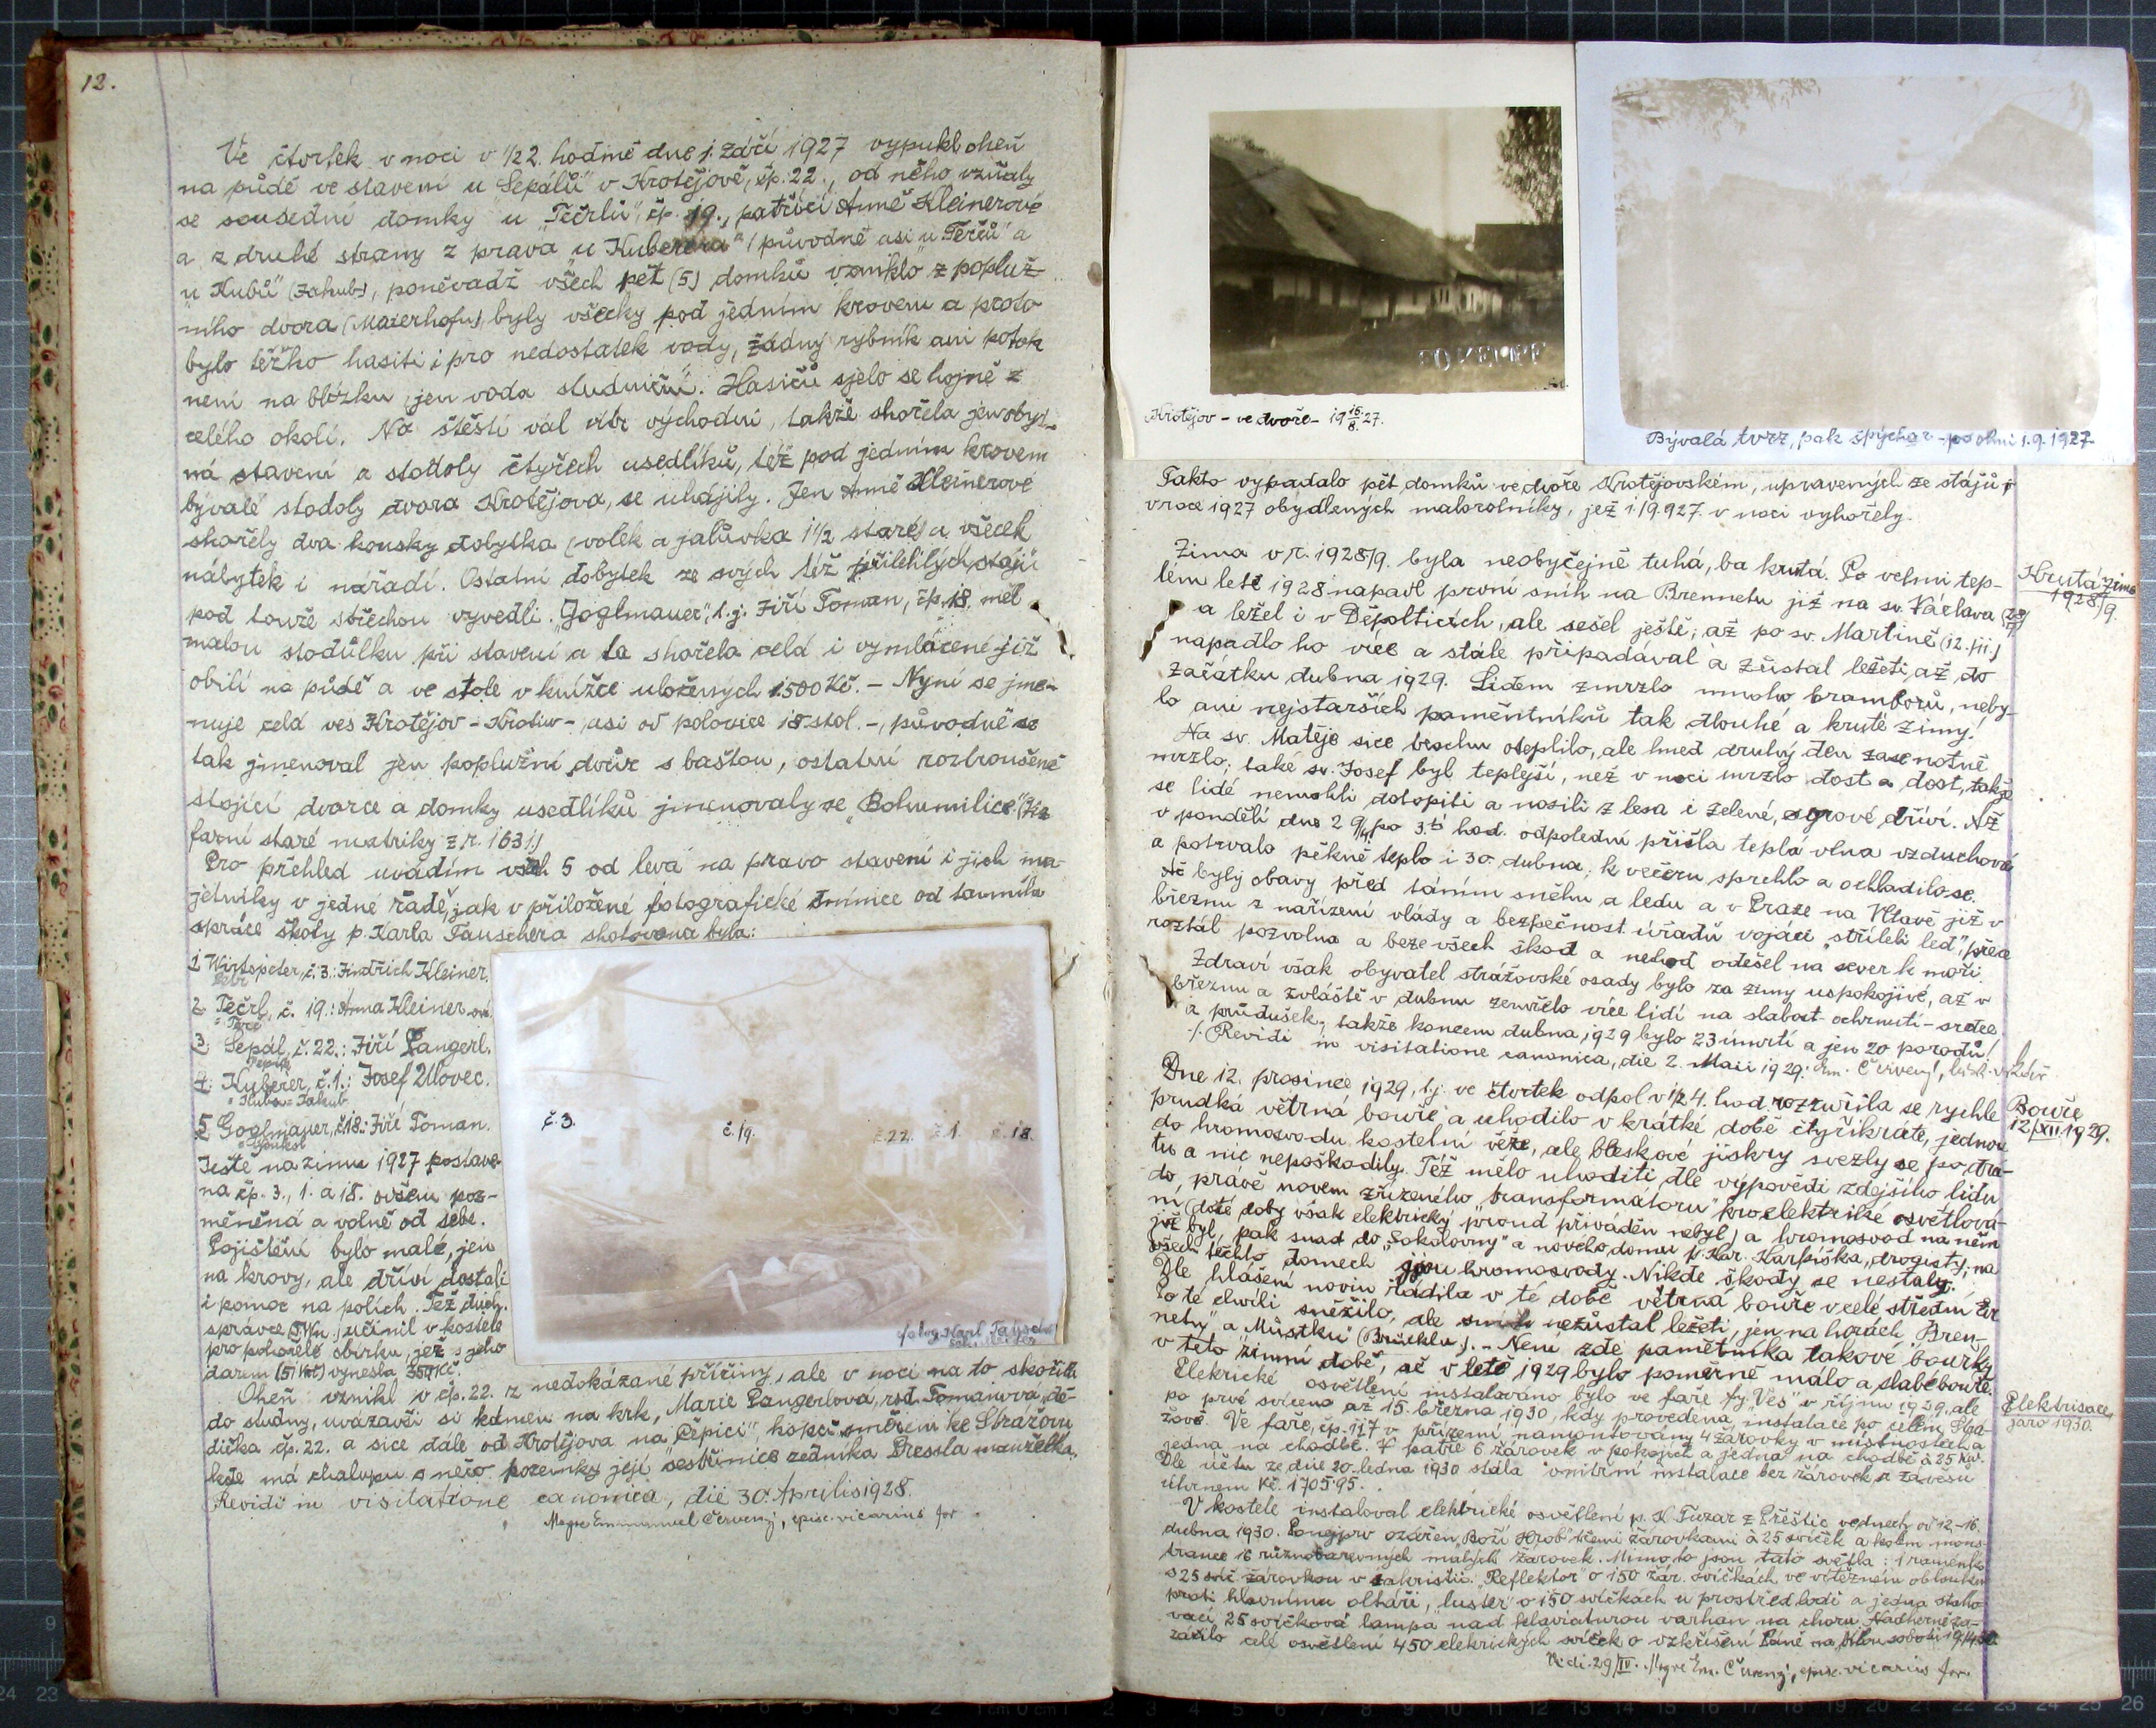 12.
Ve čtvrtek v noci v 1/2 2. hodině dne 1. září 1927 vypukl oheň
na půdě ve stavení u "Sepálů" v Krotějově, čp. 22., od něho vzňaly
se sousední domky "u Tečrlů", čp. 19., patřící Anně Kleinerové
a z druhé strany z prava "u Kuberera" (původně asi "u Terčů" a
"u Kubů" (Jakub), poněvadž všech pět (5) domků vzniklo z popluž-
ního dvora (Maierhofu), byly všecky pod jedním krovem a proto
bylo těžko hasiti i pro nedostatek vody, žádný rybník ani potok
není na blízku, jen voda studniční. Hasičů sjelo se hojně z
celého okolí. Na štěstí vál vítr východní, takže shořela jen obyt-
ná stavení a stodoly čtyřech usedlíků, též pod jedním krovem
bývalé stodoly dvora Krotějova, se uhájily. Jen Anně Kleinerové
shořely dva kousky dobytka (volek a jalůvka 1 1/2 staré) a všecek
nábytek i nářadí. Ostatní dobytek ze svých též přilehlých stájí
pod touže střechou vyvedli. "Goglmauer", t.j. Jiří Toman, čp. 18. měl
malou stodůlku při stavení a ta shořela celá i vymlácené již
obilí na půdě a ve stole v knížce uložených 1500 Kč. - Nyní se jme-
nuje celá ves Krotějov - Krotiw - asi od polovice 18. stol. -, původně se
tak jmenoval jen poplužní dvůr s baštou, ostatní roztroušeně
stojící dvorce a domky usedlíků jmenovaly se "Bohumilice" (viz
farní staré matriky z r. 1631.)
Pro přehled uvádím všech 5 od leva na pravo stavení i jich ma-
jetníky v jedné řadě, jak v přiložené fotografické snímce od tamního
správce školy p. Karla Tauschera shotovena byla:
1. Wirtspeter, č. 3.: Jindřich Kleiner.
Petr
2. Tečrl, č. 19.: Anna Kleinerová.
= Terč
3. Sepál, č. 22.: Jiří Pangerl.
Pepík
4. Kuberer, č. 1.: Josef Zlovec.
= Kuba = Jakub
5. Goglmauer, č. 18.: Jiří Toman.
Ještě na zimu 1927 postave-
na čp. 3., 1. a 18. ovšem poz-
měněná a volně od sebe.
Pojištění bylo malé, jen
na krovy, ale dříví dostali
i pomoc na polích. Též duch.
správce učinil v kostele
pro pohořelé sbírku, jež s jeho
darem vynesla Kč.
č. 3.
č. 19.
č. 22.
č. 1.
č. 18.
fotog. Karl Tausch
Oheň vznikl v čp. 22. z nedokázané příčiny, ale v noci na to skočila
do studny, uvázavši si kámen na krk, Marie Pangerlová, roz. Tomanova, dě-
dička čp. 22. a sice dále od Krotějova na "Čepici", kopci směrem ke Strážovu
kde má chalupu a něco pozemky její sestřenice zedníka Pressla manželka.
Revidi in visitatione canonica, die 30. Aprilis 1928.
Mgre Emmanuel Červený, episc. vicarius for
Krotějov - ve dvoře - 19 16/8. 27.
Bývalá tvrz, pak špýchar - po ohni 1.9. 1927.
Takto vypadalo pět domků ve dvoře Krotějovském, upravených ze stájí
v roce 1927 obydlených malorolníky, jež i 1/9. 927. v noci vyhořely.
Krutá zima
1928/9.
Zima v r. 1928/9. byla neobyčejně tuhá, ba krutá. Po velmi tep-
lém létě 1928 napadl první sníh na Brennetu již na sv. Václava
a ležel i v Děpolticích, ale sešel ještě; až po sv. Martině (12./11.)
napadlo ho více a stále připadával a zůstal ležeti až do
začátku dubna 1929. Lidem zmrzlo mnoho bramborů, neby-
lo ani nejstarších pamětníků tak dlouhé a kruté zimy!
Na sv. Matěje sice trochu oteplilo, ale hned druhý den zase notně
mrzlo; také sv. Josef byl teplejší, než v noci mrzlo dost a dost, takže
se lidé nemohli dotopiti a nosili z lesa i zelené, syrové dříví. Až
v pondělí dne po 3. hod. odpolední přišla teplá vlna vzduchová
a potrvalo pěkně teplo i 30. dubna; k večeru sprchlo a ochladilo se.
Ač byly obavy před táním sněhu a ledu a v Praze na Vltavě již v
březnu z nařízení vlády a bezpečnost. úřadů vojáci "stříleli led", přece
roztál pozvolna a beze všech škod a nehod odešel na sever k moři.
Zdraví však obyvatel strážovské osady bylo za zimy uspokojivé, až v
březnu a zvláště v dubnu zemřelo více lidí na slabost - ochrnutí - srdce
a průdušek, takže koncem dubna 1929 bylo 23 úmrtí a jen 20 porodů!
Revidi in visitatione canonica, die 2. Maii 1929. Em. Červený, bisk. vikář
Bouře
12./XII. 1929.
Dne 12. prosince 1929, t.j. ve čtvrtek odpol v 1/2 4. hod. rozzuřila se rychle
prudká větrná bouře a uhodilo v krátké době čtyřikráte, jednou
do hromosvodu kostelní věže, ale bleskové jiskry svezly se po drá-
tu a nic nepoškodily. Též mělo uhoditi dle výpovědi zdejšího lidu
do, právě novem zřízeného "transformátoru" pro elektrické osvětlová-
ní (do té doby však elektrický proud přiváděn nebyl) a hromosvod na něm
již byl, pak snad do "Sokolovny" a nového domu p. Kar. Karpíška, drogisty; na
všech těchto domech jsou hromosvody. Nikde škody se nestaly.
Dle hlášení novin řádila v té době větrná bouře v celé střední Evr
to té chvíli sněžilo, ale sníh nezůstal ležeti, jen na horách "Bren-
netu" a Můstku (Brückelu). - Není zde pamětníka takové bouřky
v této zimní době, ač v létě 1929 bylo poměrně málo a slabé bouře.
Elektrisace
jaro 1930.
Elekrické osvětlení instalováno bylo ve faře fy "Ves" v říjnu 1929, ale
po prvé svíceno až 15. března 1930, kdy provedena instalace po celém Strá-
žově. Ve faře, čp. 117 v přízemí namontovány 4 žárovky v místnostech a
jedna na chodbě. V patře 6 žárovek v pokojích a jedna na chodbě à 25 Kw.
Dle účtu ze dne 20. ledna 1930 stála vnitřní instalace bez žárovek a závěsů
úhrnem Kč. 1705.95.
V kostele instaloval elektrické osvětlení p. K. Tuzar z Přeštic ve dnech od 12.-16.
dubna 1930. Ponejprv ozářen "Boží Hrob" třemi žárovkami à 25 svíček a kolem mons-
trance 16 různobarevných malých žárovek. Mimo to jsou tato světla: 1 raménko
s 25 svíč. žárovkou v sakristii. "Reflektor" o 150 žár. svíčkách ve vítězném oblouku
proti hlavnímu oltáři, "lustr" o 150 svíčkách u prostřed lodi a jedna stoho-
vací 25 svíčková "lampa" nad klaviaturou varhan na choru. Nádherně za-
zářilo celé osvětlení 450 elekrických svíček o vzkříšení Páně na Bílou sobotu
Vidi 29/IV. Mgre Em. Červený, episc. vicarius for.